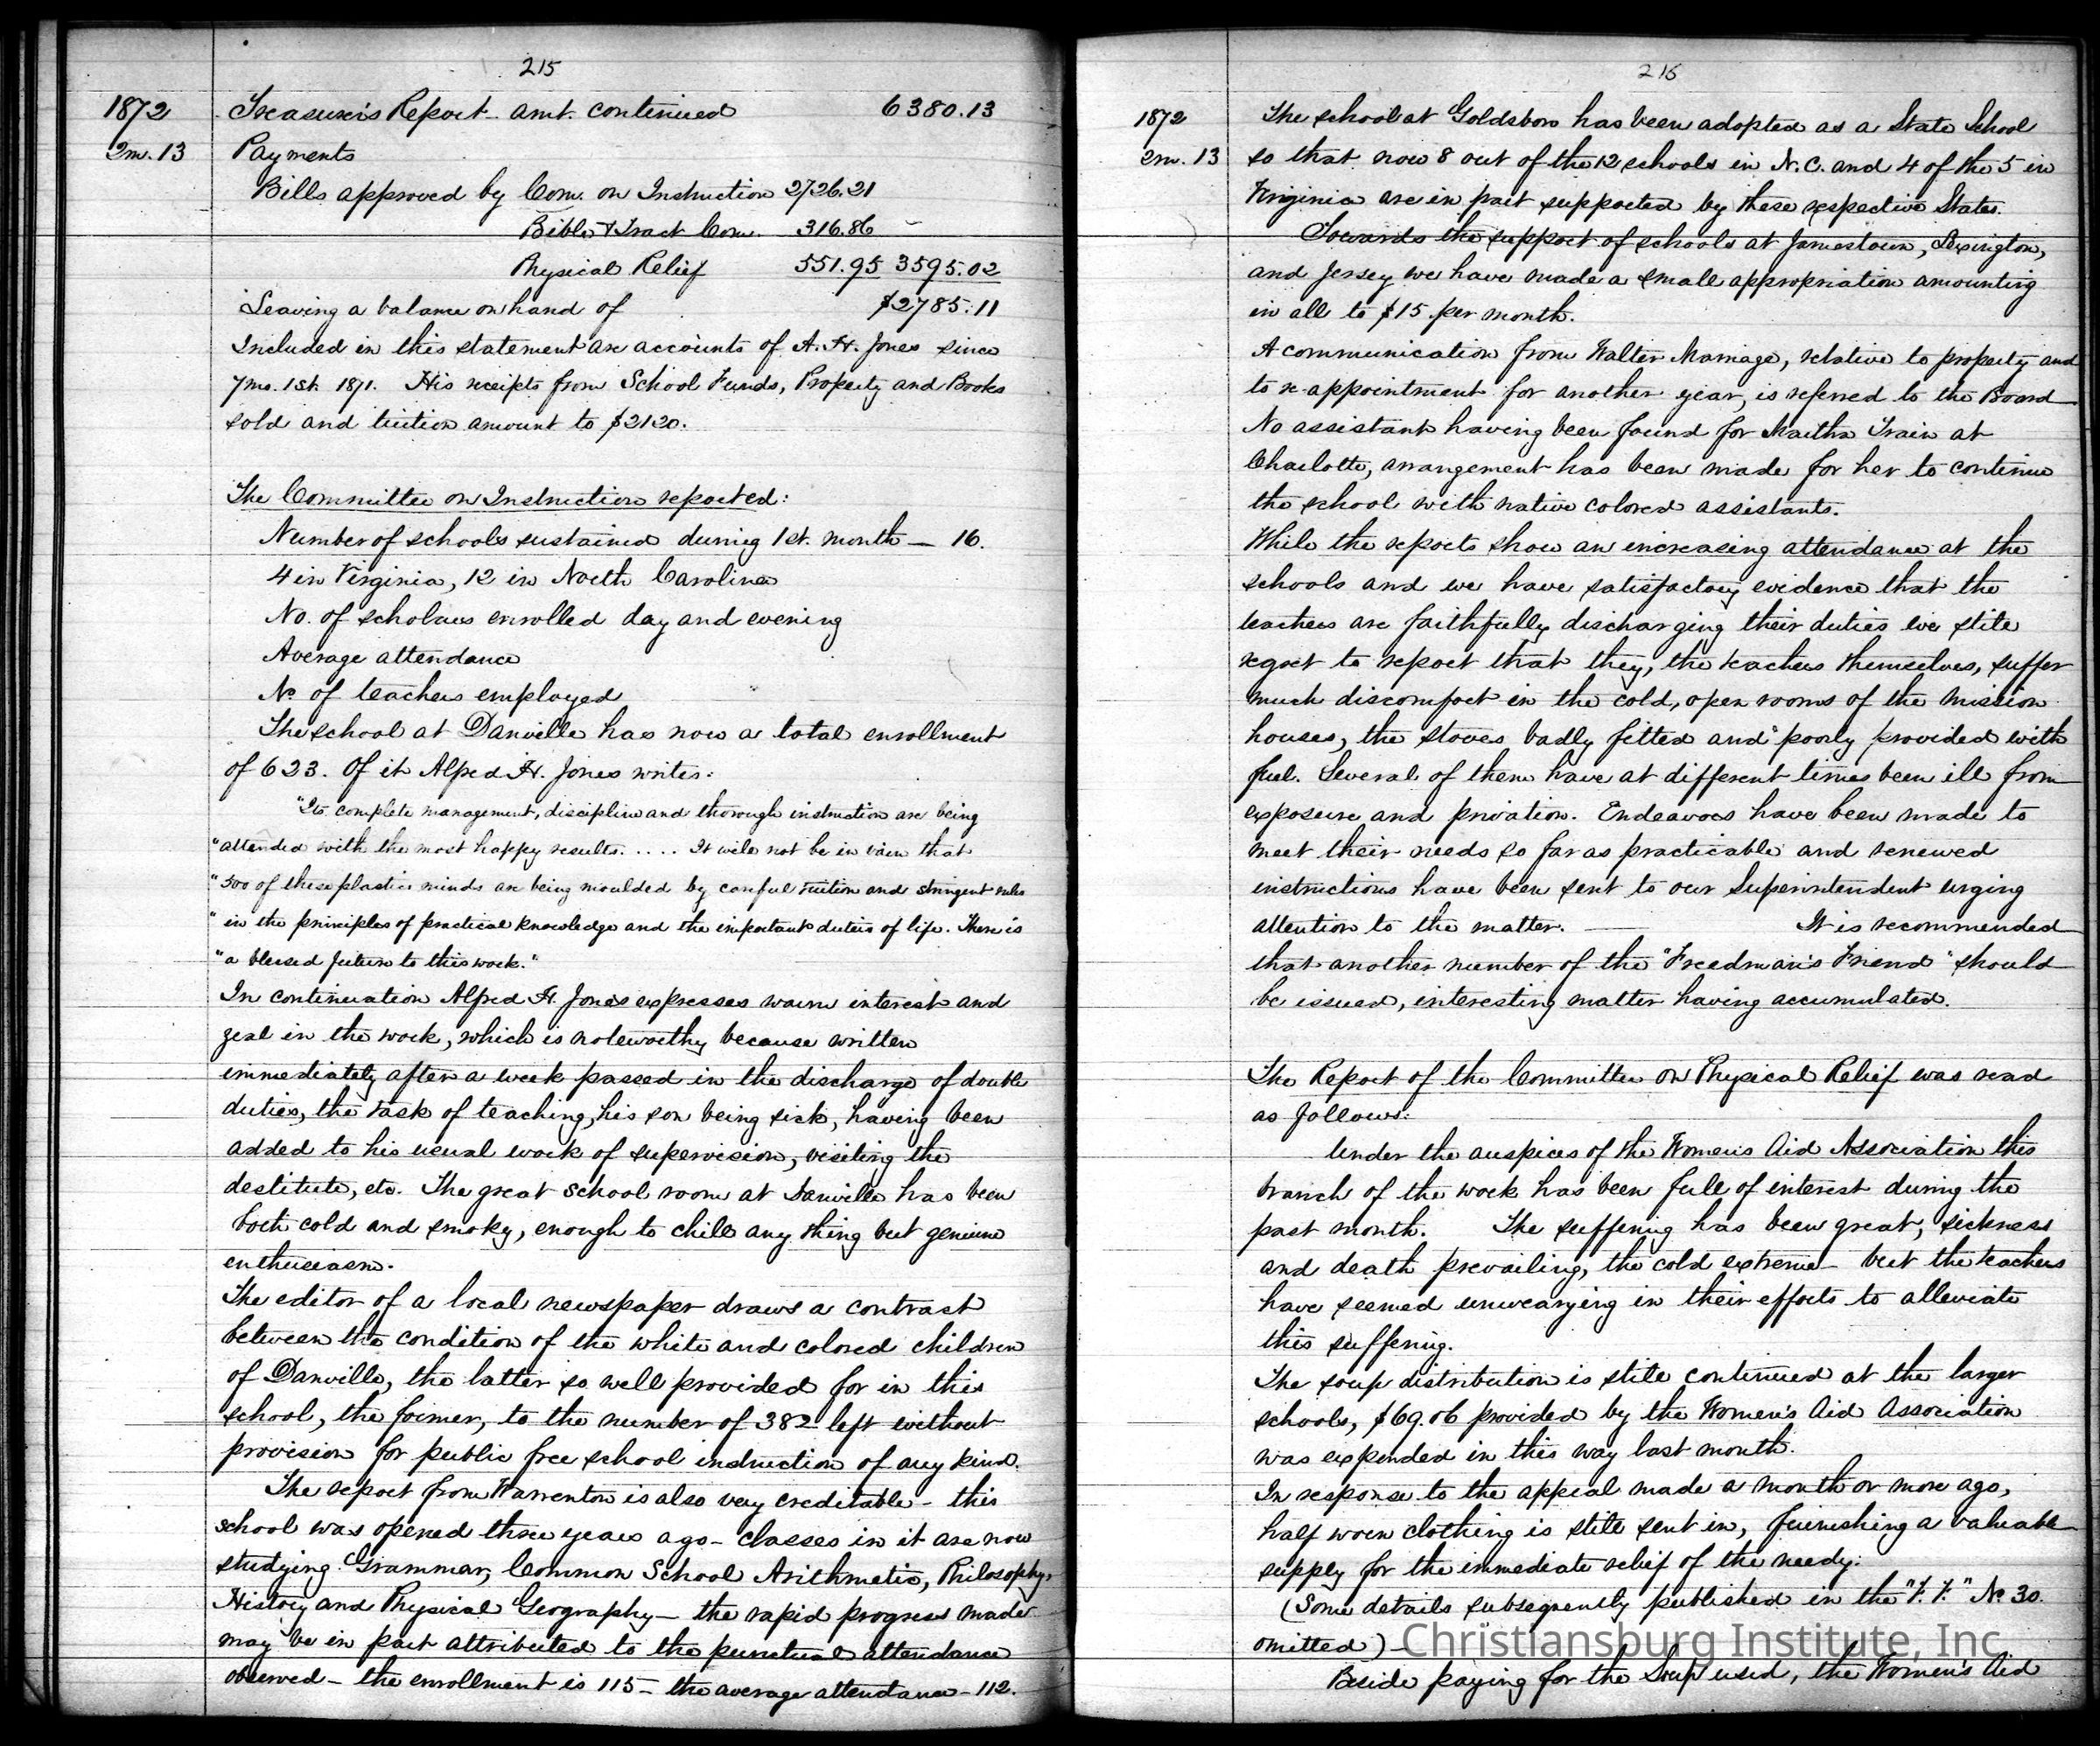 215
1872 Treasurer's Report amt. continued 6380.13
2m. 13 Payments
Bills approved by Com. on Instruction 2726.21
Bible & Tract Com. 316.86
Physical Relief 551.95 3595.02
Leaving a balance on hand of $2785.11
Included in this statement are accounts of A. H. Jones since
7mo. 1st. 1871. His receipts from School Funds, Property and Books
sold and tuition amount to $2120.
The Committee on Instruction reported:
Number of schools sustained during 1st. month — 16.
4 in Virginia, 12 in North Carolina
No. of scholars enrolled day and evening
Average attendance
No of teachers employed
The school at Danville has now a total enrollment
of 623. Of it Alfred H. Jones writes:
"Its complete management, discipline and thorough instruction are being
"attended with the most happy results. .... It will not be in vain that
"500 of these plastic minds are being moulded by careful tuition and stringent rules
"in the principles of practical knowledge and the important duties of life. There is
"a blessed future to this work."
In continuation Alfred H. Jones expresses warm interest and
zeal in the work, which is noteworthy because written
immediately after a week passed in the discharge of double
duties, the task of teaching, his son being sick, having been
added to his usual work of supervision, visiting the
destitute, etc. The great school room at Danville has been
both cold and smoky, enough to chill any thing but genuine
enthusiasm.
The editor of a local newspaper draws a contrast
between the condition of the white and colored children
of Danville, the latter so well provided for in this
school, the former, to the number of 382 left without
provision for public free school instruction of any kind.
The report from Warrenton is also very creditable - this
school was opened three years ago - classes in it are now
studying Grammar, Common School Arithmetic, Philosophy,
History and Physical Geography - the rapid progress made
may be in part attributed to the punctual attendance
observed - the enrollment is 115 - the average attendance - 112.
216
1872 The school at Goldsboro has been adopted as a State School
2m. 13 so that now 8 out of the 12 schools in N.C. and 4 of the 5 in
Virginia are in part supported by these respective States.
Towards the support of schools at Jamestown, Lexington,
and Jersey we have made a small appropriation amounting
in all to $15. per month.
A communication from Walter Marriage, relative to property and
to re-appointment for another year, is referred to the Board
No assistant having been found for Martha Train at
Charlotte, arrangement has been made for her to continue
the school with native colored assistants.
While the reports show an increasing attendance at the
schools and we have satisfactory evidence that the
teachers are faithfully discharging their duties we still
regret to report that they, the teachers themselves, suffer
much discomfort in the cold, open rooms of the mission
houses, the stoves badly fitted and poorly provided with
fuel. Several of them have at different times been ill from
exposure and privation. Endeavors have been made to
meet their needs so far as practicable and renewed
instructions have been sent to our Superintendent urging
attention to the matter. — It is recommended
that another number of the "Freedman's Friend" should
be issued, interesting matter having accumulated.
The Report of the Committee on Physical Relief was read
as follows:
Under the auspices of the Women's Aid Association this
branch of the work has been full of interest during the
past month. The suffering has been great, sickness
and death prevailing, the cold extreme - but the teachers
have seemed unwearying in their efforts to alleviate
this suffering.
The soup distribution is still continued at the larger
schools, $69.06 provided by the Women's Aid Association
was expended in this way last month.
In response to the appeal made a month or more ago,
half worn clothing is still sent in, furnishing a valuable
supply for the immediate relief of the needy.
(Some details subsequently published in the "F. F." No 30.
omitted) -
Christiansburg Institute, Inc.
Beside paying for the Soup used, the Women's Aid